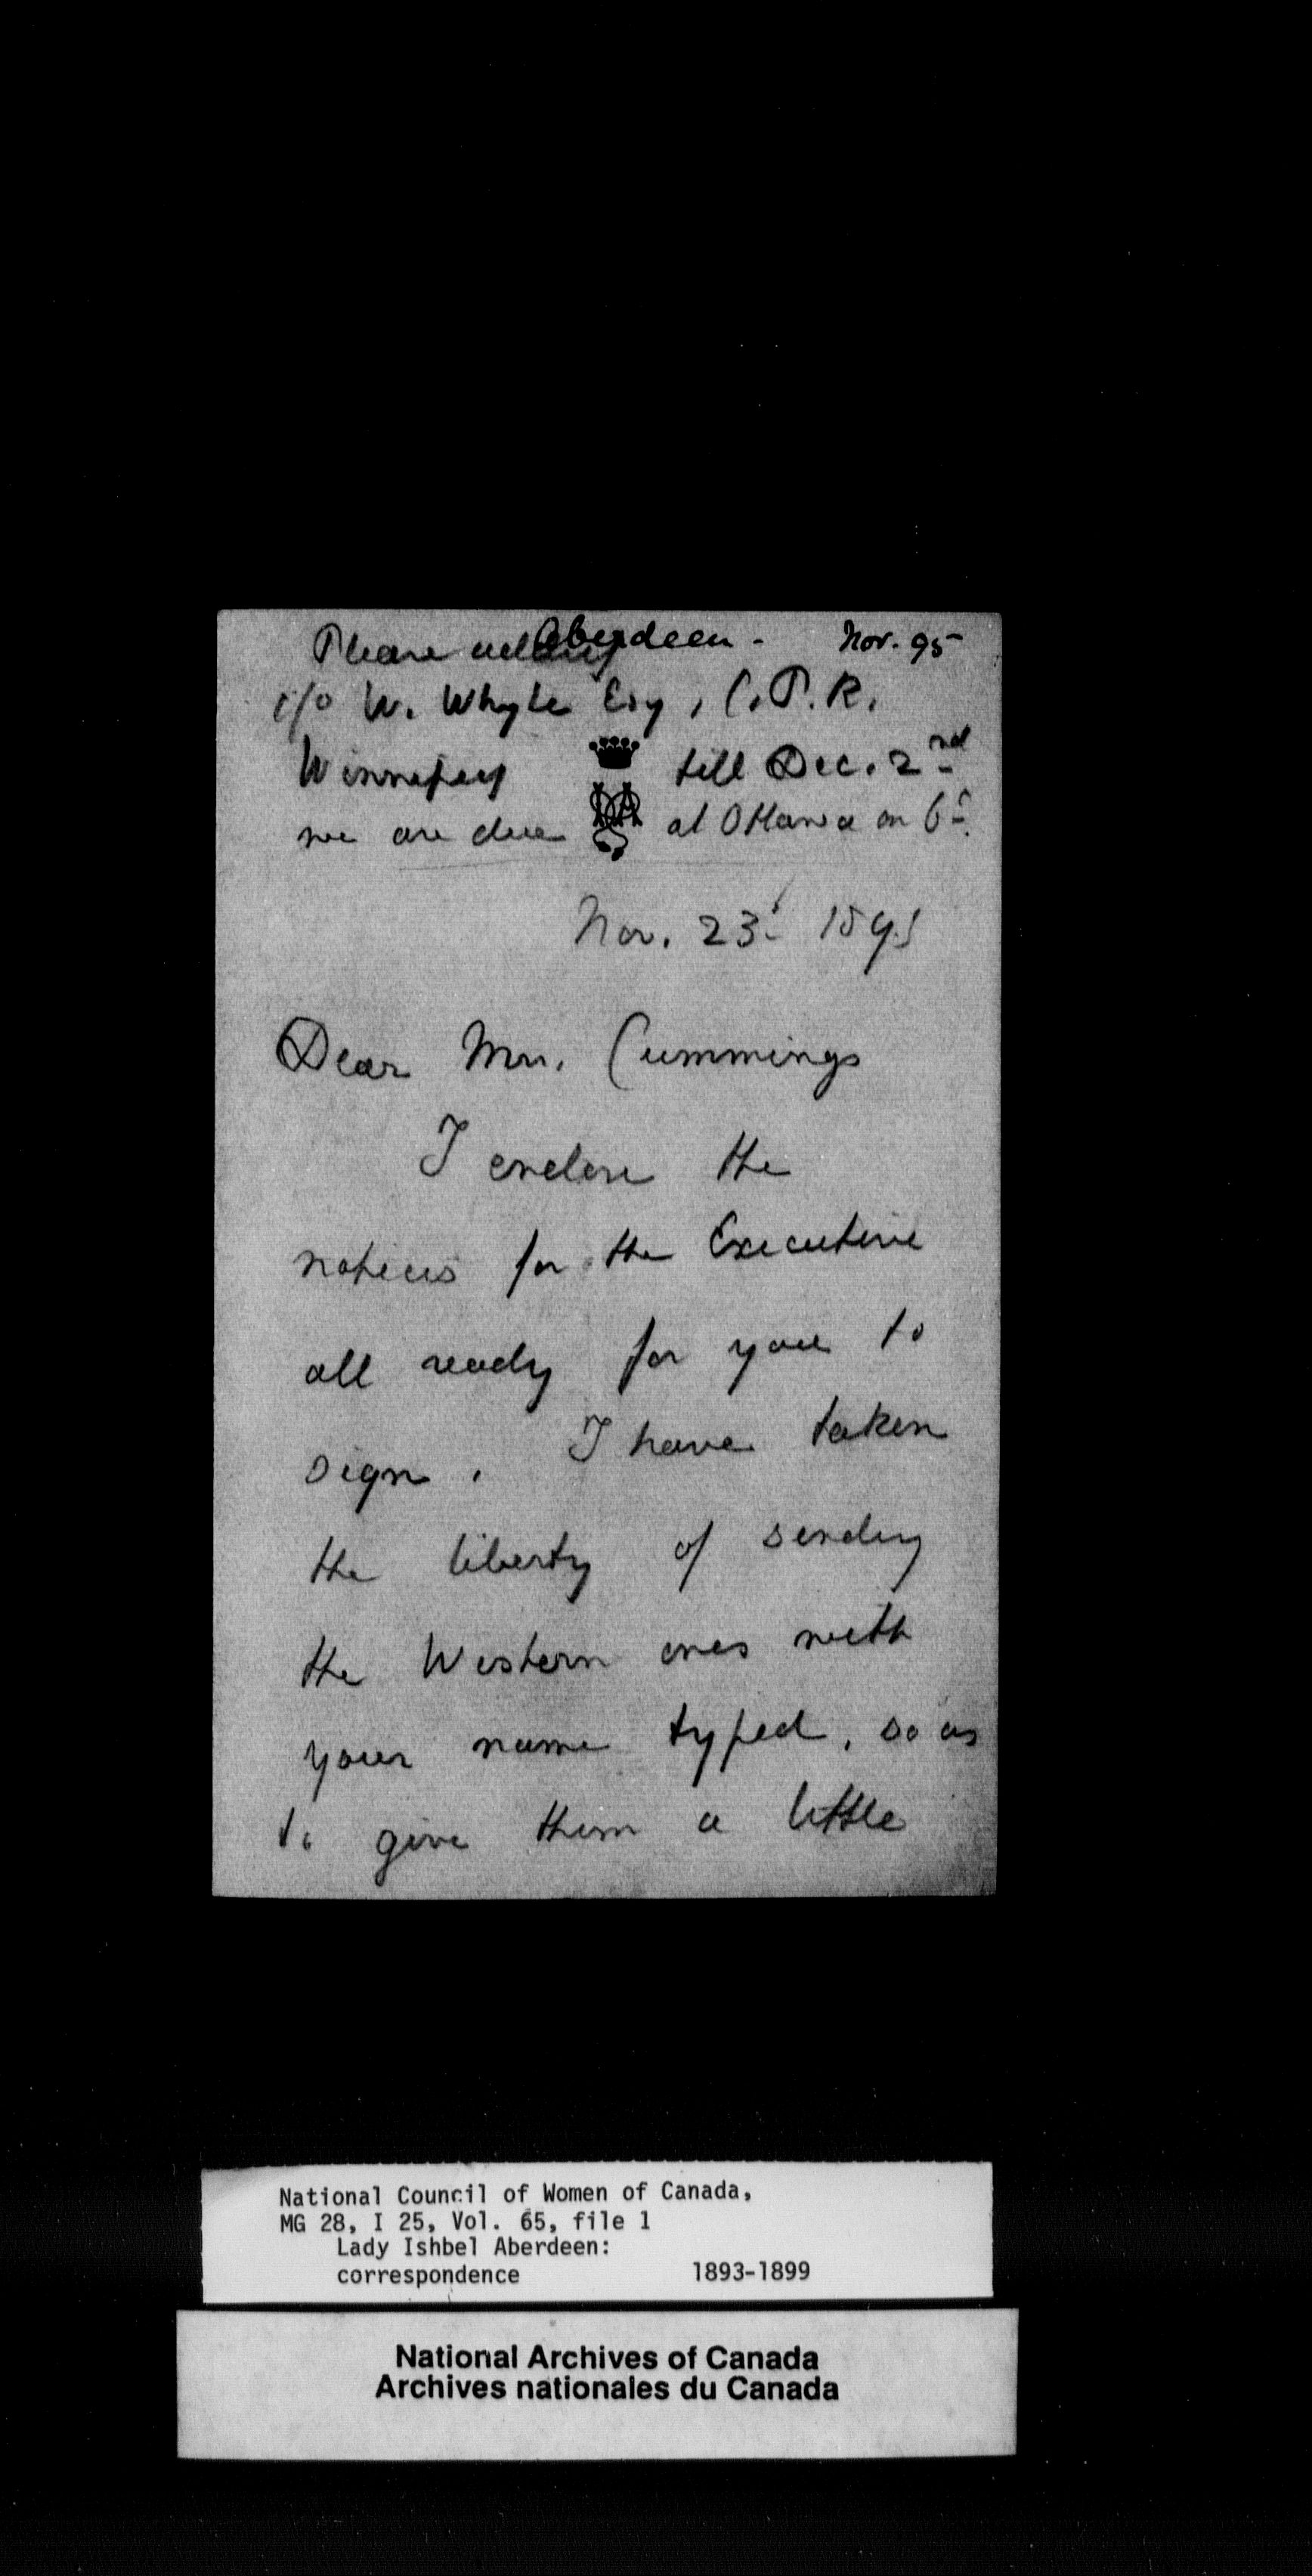 Aberdeen - Nov. 95
Please address
c/o W. Whyte Esq, C.P.R.
Winnipeg till Dec. 2nd
we are due at Ottawa on 6th.
Nov. 23. 1895
Dear Mrs. Cummings
I enclose the
notices for the Executive
all ready for you to
sign. I have taken
the liberty of sending
the Western ones with
your name typed, so as
to give them a little
National Council of Women of Canada,
MG 28, I 25, Vol. 65, file 1
Lady Ishbel Aberdeen:
correspondence 1893-1899
National Archives of Canada
Archives nationales du Canada